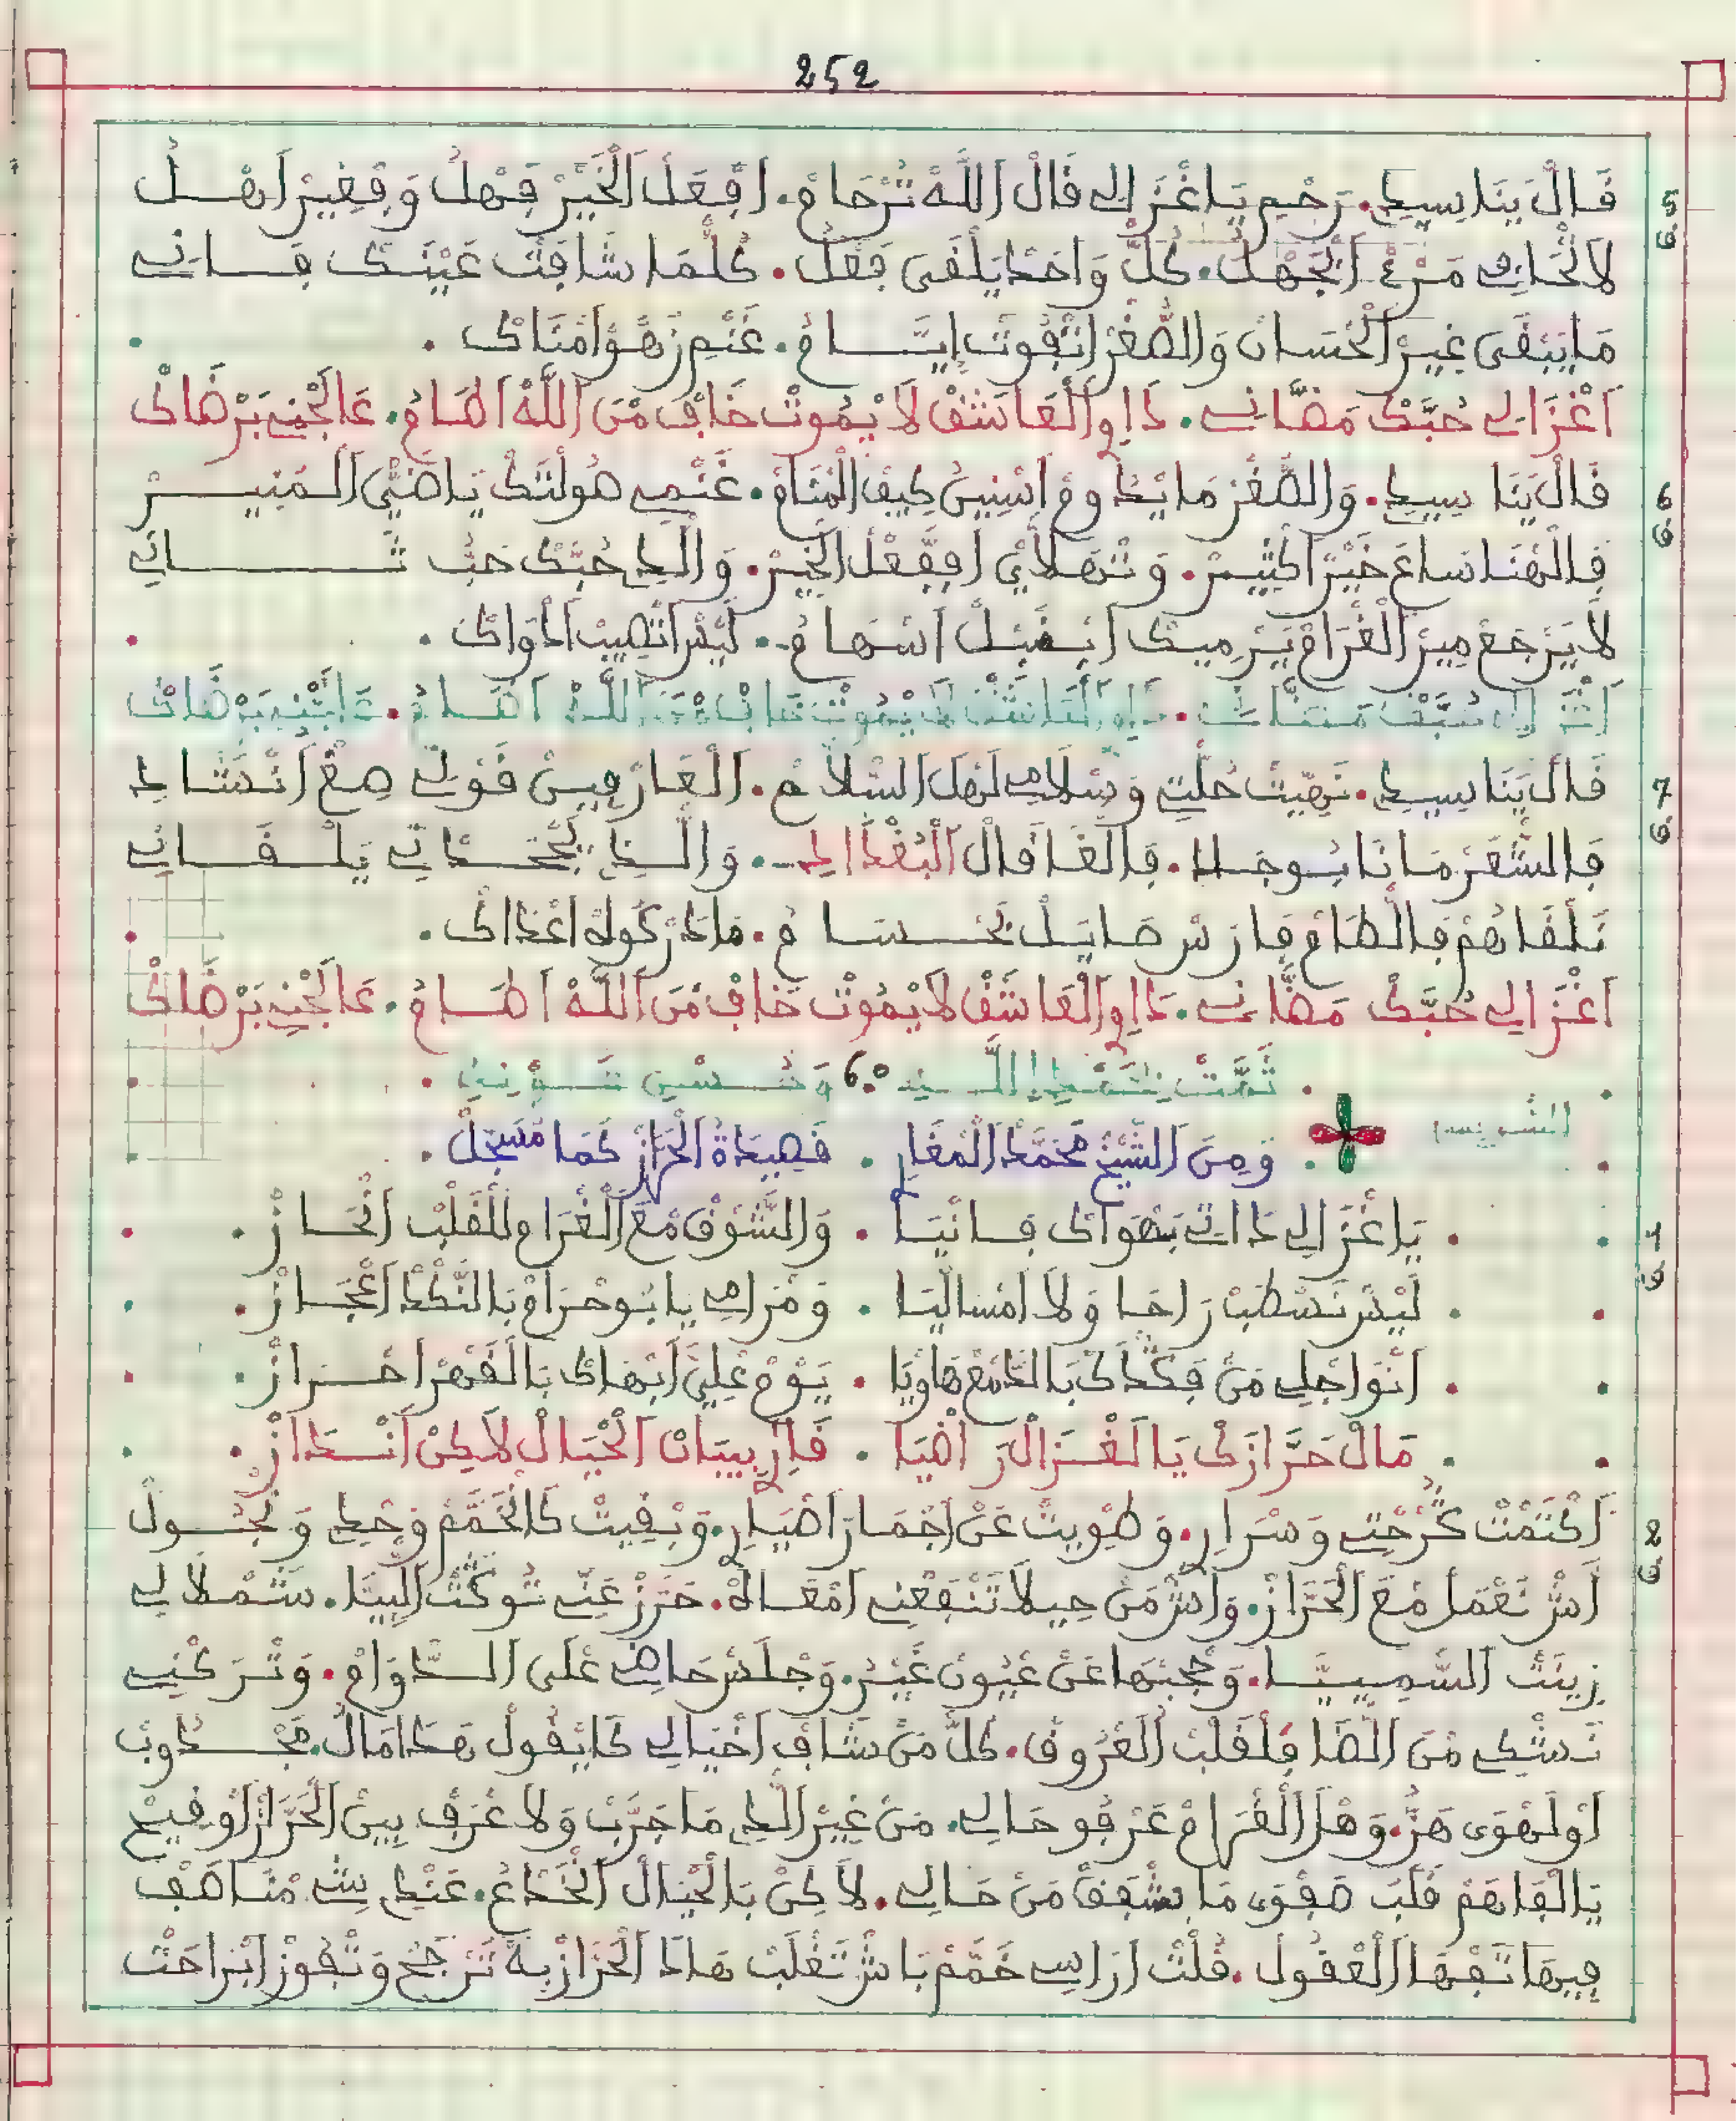 252
5 ق
قَالْ يَنَا سِيدِي. رَحْمِي يَا غْزَالِي قَالْ اَللَّهْ تُرْحَامْ. اَفْعَلْ اَلْخَيْرْ فَهْلُ وَفْغِيرْ اَهْلُ
كُلّْ وَاحَدْ يَلْقَى فَعْلُ. كُلْمَا شَافَتْ عَيْنَكْ فَانِي
مَا يَبْقَى غِيرْ اَلْحْسَانْ وَالصُّغْرْ اتْفُوتْ اِيَّامْ. غَنْمِي زَهْوْ اَمْنَاكْ.
اَغْزَالِي حُبَّكْ مَضَّانِي. دَاوِ اَلْعَاشَقْ لاَ يْمُوتْ خَافْ مَنْ اَللَّهْ اَطَامْ. عَالَجْنِي بَرْضَاكْ
6 ق
قَالْ يَنَا سِيدِي. وَالصُّغْرْ مَا يْدُومْ اَسْنِينُ كِيفْ اَلْمْنَامْ. غَنْمِي هُولْتَكْ يَا ضَيّْ اَلْمْنِيرْ
فَالْهْنَا سَاعَ خَيْرْ اَكْثِيرْ. وَتْهَلاَّيْ اَفْفَعْلْ اَلْخِيرْ. وَالْدِي حُبَّكْ حَبُّ ثَانِي
لاَ يَرْجَعْ مِيرْ اَلْغْرَامْ يَرْمِيكْ اَبْنَبْلْ اَسْهَامُ. لَيْسْ اَتْصِيبْ اَدْوَاكْ.
اَغْزَالِي حُبَّكْ مَضَّانِي. دَاوِ اَلْعَاشَقْ لاَ يْمُوتْ خَافْ مَنْ اَللَّهْ اَطَامْ. عَالَجْنِي بَرْضَاكْ
7 ق
قَالْ يَنَا سِيدِي. نَهِّيتْ حُلّْتِي وَسْلاَمِي لَهْلْ اَلسّْلاَمْ. اَلْعَارْفِينْ قَوْلِي صِغْ اَنْشَادِي
فَالشّْعَرْ مَانَا بُوجَلاَ. فَالْغَا قَالْ اَلْبُغْدَادِي. وَالْدِي يَجْحَدْنِي يَلْقَانِي
تَلْقَاهُمْ فَالطَّامْ فَارَسْ صَايَلْ بَحْسَامُ. مَا دَرْكُوهْ اَعْدَاكْ.
اَغْزَالِي حُبَّكْ مَضَّانِي. دَاوِ اَلْعَاشَقْ لاَ يْمُوتْ خَافْ مَنْ اَللَّهْ اَطَامْ. عَالَجْنِي بَرْضَاكْ
وَمِنَ اَلشَّيْخْ مُحَمَّدْ اَلنَّجَّارِ. قَصِيدَةُ اَلْحْرَازْ كَمَا مُسَجَّلْ.
1 ق
يَا غْزَالِي دَاتِي بَهْوَاكْ فَانْيَا. وَالشَّوْقْ مْعَ اَلْغْرَامْ لَلْقَلْبْ اَنْحَازْ.
لَيْسْ نَسْطَبْ رَاحَا وَلاَ اَمْسَالْيَا. وَمْرَامِي يَا بُوحْرَامْ بَالنَّكْدْ اَعْجَازْ.
اَنْوَاجْلِي مَنْ فَكْدَاكْ بَالدّْمَعْ هَاوْيَا. يَوْمْ عْلِيَّ اَبْهَاكْ بَالْقَهْرْ اَحْرَازْ.
مَالْ حَرَّازَكْ يَا الْغْزَالْ رَاضْيَا. قَارِ بِيبَانْ اَلْحْيَالْ لاَكِنْ اَنْسْدَازْ.
2 ق
اَكْتَمْتْ كُرْحْتِي وَسْرَارِ. وَطْوِيتْ عَنْ اَجْمَارْ اَضْيَارِ. وَبْقِيتْ كَانْخَمَّمْ وَحْدِي وَنْجُولْ
اَشْ نَعْمَلْ مْعَ اَلْحَرَّازْ. وَاشْ مَنْ حِيلاَ تَنْفَعْنِي اَمْعَاهْ. حَرَّزْ عَنِّي تُوكَتْ اَلْبِيتَا. شَمْلاَلِي
زِينَتْ اَلسَّمِييَّا. وَحْجَبْهَا عَنْ عْيُونْ غَيْرُ. وَجْلَسْ حَاضِي عْلَى اَلدّْوَامْ. وَتْرَكْنِي
نَشْكِي مَنْ اَلْضَا فَلْقَلْبْ اَلْعْرُوفْ. كُلّْ مَنْ شَافْ اَخْيَالِي كَايْقُولْ هَدَا مَالُ مَجْدُوبْ
اَوْ لَهْوَى هَزُّ. وَهْلْ اَلْغْرَامْ عَرْفُو حَالِي. مَنْ غِيرْ اَلْدِي مَا جَرَّبْ وَلاَ عْرَفْ بِينْ اَلْحَرَّازْ اَوْقِيحْ
يَا لْفَاهَمْ قَلْبُ صَفْوَى مَا يَشْفَقْ مَنْ حَالِي. لاَكِنْ بَالْحْيَالْ اَلْخْدَاعْ. عَنْدِي شِي مْنَاصَفْ
فِيهَا تَفْهَا اَلْعْقُولْ. قُلْتْ اَرَاسِي خَمَّمْ بَاشْ تَغْلَبْ هَادَا اَلْحَرَّازْ بِهْ تَرْجَحْ وَتْفُوزْ اَبْرَاحْتْ